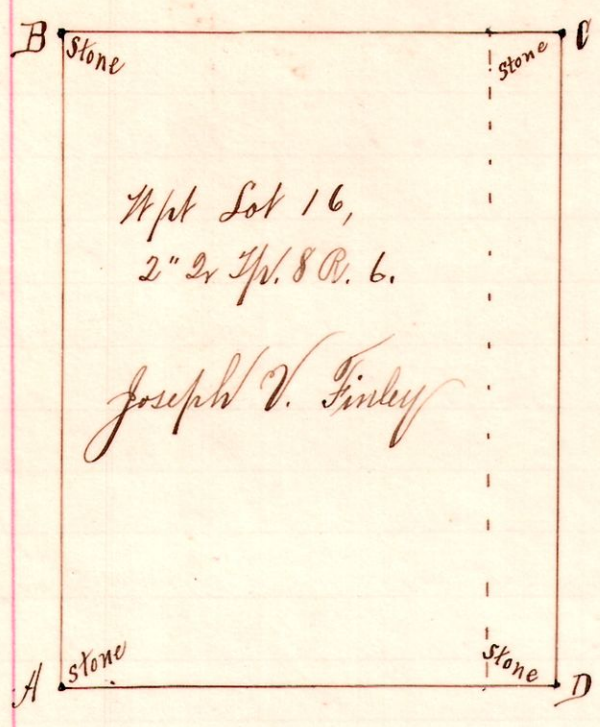 B Stone Stone C
W pt Lot 16,
2" Qr Tp. 8 R. 6.
Joseph V. Finley
A Stone Stone D